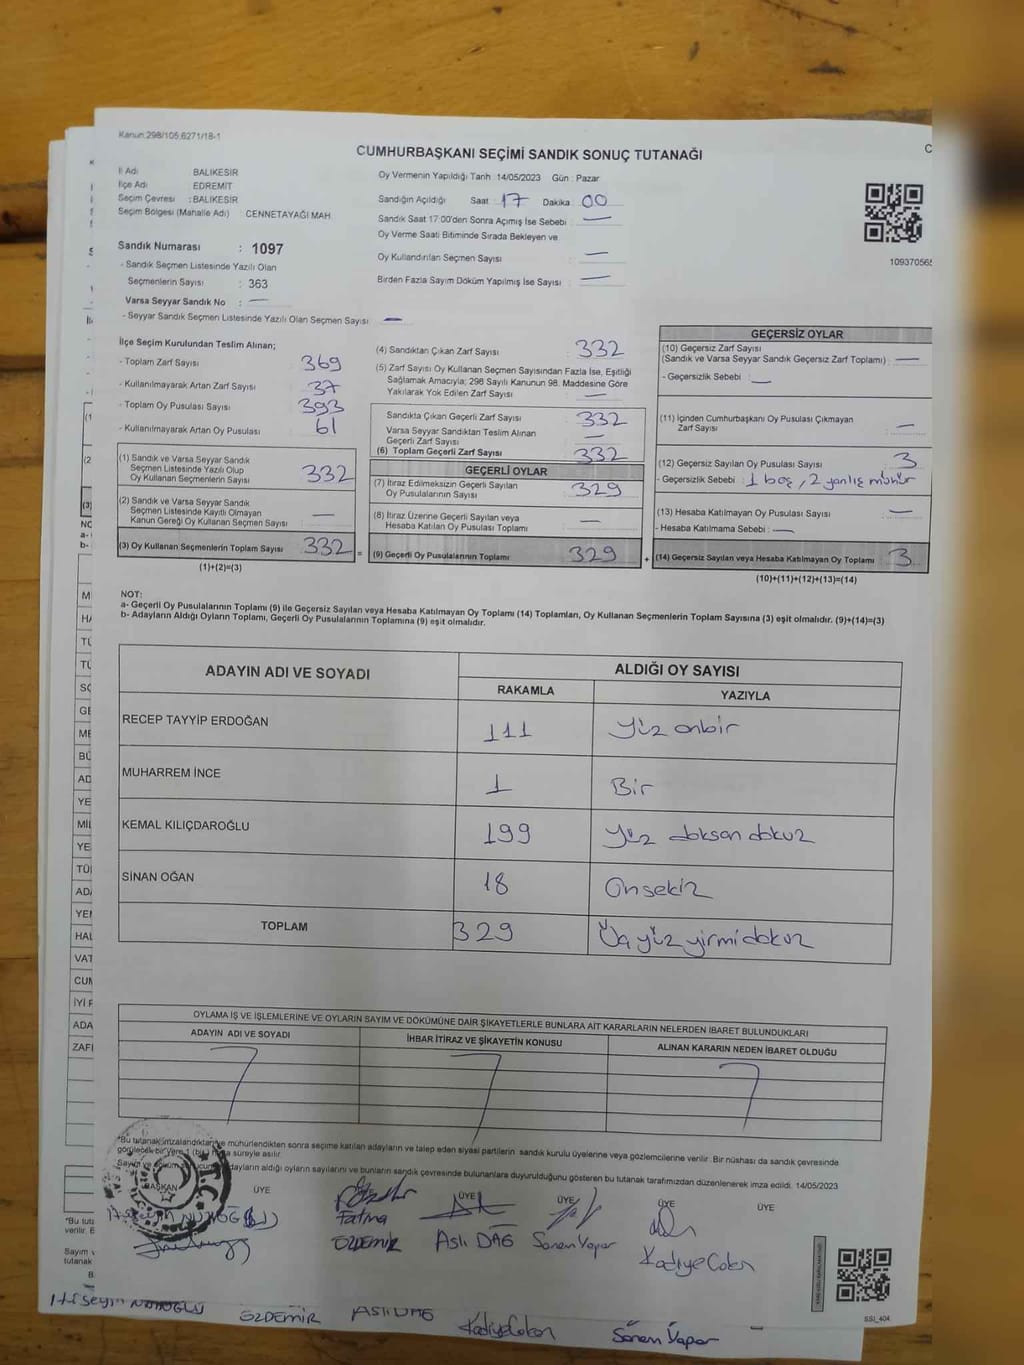 Kanun:298/105;6271/18-1
CUMHURBAŞKANI SEÇİMİ SANDIK SONUÇ TUTANAĞI
İl Adı BALIKESİR
İlçe Adı EDREMİT
Seçim Çevresi : BALIKESİR
Seçim Bölgesi (Mahalle Adı) CENNETAYAĞI MAH.
Oy Vermenin Yapıldığı Tarih :14/05/2023 Gün : Pazar
Sandığın Açıldığı Saat 17 Dakika 00
Sandık Saat 17:00'den Sonra Açımış İse Sebebi : —
Oy Verme Saati Bitiminde Sırada Bekleyen ve
Oy Kullandırılan Seçmen Sayısı : —
Birden Fazla Sayım Döküm Yapılmış İse Sayısı : —
109370565
Sandık Numarası : 1097
- Sandık Seçmen Listesinde Yazılı Olan
Seçmenlerin Sayısı : 363
Varsa Seyyar Sandık No : —
- Seyyar Sandık Seçmen Listesinde Yazılı Olan Seçmen Sayısı —
İlçe Seçim Kurulundan Teslim Alınan;
- Toplam Zarf Sayısı 369
- Kullanılmayarak Artan Zarf Sayısı 37
- Toplam Oy Pusulası Sayısı 393
- Kullanılmayarak Artan Oy Pusulası 61
(1) Sandık ve Varsa Seyyar Sandık
Seçmen Listesinde Yazılı Olup
Oy Kullanan Seçmenlerin Sayısı 332
(2) Sandık ve Varsa Seyyar Sandık
Seçmen Listesinde Kayıtlı Olmayan
Kanun Gereği Oy Kullanan Seçmen Sayısı —
(3) Oy Kullanan Seçmenlerin Toplam Sayısı 332 =
(1)+(2)=(3)
(4) Sandıktan Çıkan Zarf Sayısı 332
(5) Zarf Sayısı Oy Kullanan Seçmen Sayısından Fazla İse, Eşitliği
Sağlamak Amacıyla; 298 Sayılı Kanunun 98. Maddesine Göre
Yakılarak Yok Edilen Zarf Sayısı —
Sandıkta Çıkan Geçerli Zarf Sayısı 332
Varsa Seyyar Sandıktan Teslim Alınan
Geçerli Zarf Sayısı —
(6) Toplam Geçerli Zarf Sayısı 332
GEÇERLİ OYLAR
(7) İtiraz Edilmeksizin Geçerli Sayılan
Oy Pusulalarının Sayısı 329
(8) İtiraz Üzerine Geçerli Sayılan veya
Hesaba Katılan Oy Pusulası Toplamı —
(9) Geçerli Oy Pusulalarının Toplamı 329 +
GEÇERSİZ OYLAR
(10) Geçersiz Zarf Sayısı
(Sandık ve Varsa Seyyar Sandık Geçersiz Zarf Toplamı) —
- Geçersizlik Sebebi : —
(11) İçinden Cumhurbaşkanı Oy Pusulası Çıkmayan
Zarf Sayısı —
(12) Geçersiz Sayılan Oy Pusulası Sayısı 3
- Geçersizlik Sebebi : 1 boş, 2 yanlış mühür
(13) Hesaba Katılmayan Oy Pusulası Sayısı —
- Hesaba Katılmama Sebebi : —
(14) Geçersiz Sayılan veya Hesaba Katılmayan Oy Toplamı 3
(10)+(11)+(12)+(13)=(14)
NOT:
a- Geçerli Oy Pusulalarının Toplamı (9) ile Geçersiz Sayılan veya Hesaba Katılmayan Oy Toplamı (14) Toplamları, Oy Kullanan Seçmenlerin Toplam Sayısına (3) eşit olmalıdır. (9)+(14)=(3)
b- Adayların Aldığı Oyların Toplamı, Geçerli Oy Pusulalarının Toplamına (9) eşit olmalıdır.
ADAYIN ADI VE SOYADI ALDIĞI OY SAYISI
RAKAMLA YAZIYLA
RECEP TAYYİP ERDOĞAN 111 Yüz onbir
MUHARREM İNCE 1 Bir
KEMAL KILIÇDAROĞLU 199 Yüz doksan dokuz
SİNAN OĞAN 18 Onsekiz
TOPLAM 329 Üç yüz yirmi dokuz
OYLAMA İŞ VE İŞLEMLERİNE VE OYLARIN SAYIM VE DÖKÜMÜNE DAİR ŞİKAYETLERLE BUNLARA AİT KARARLARIN NELERDEN İBARET BULUNDUKLARI
ADAYIN ADI VE SOYADI İHBAR İTİRAZ VE ŞİKAYETİN KONUSU ALINAN KARARIN NEDEN İBARET OLDUĞU
*Bu tutanak imzalandıktan ve mühürlendikten sonra seçime katılan adayların ve talep eden siyasi partilerin sandık kurulu üyelerine veya gözlemcilerine verilir. Bir nüshası da sandık çevresinde
görülecek bir yere 1 (bir) hafta süreyle asılır.
Sayım ve döküm sonucunda adayların aldığı oyların sayılarını ve bunların sandık çevresinde bulunanlara duyurulduğunu gösteren bu tutanak tarafımızdan düzenlenerek imza edildi. 14/05/2023
BAŞKAN ÜYE ÜYE ÜYE ÜYE ÜYE
Fatma
ÖZDEMİR Aslı DAĞ Sanem Yapar Kadiye Çoban
SSİ_404
ÖZDEMİR Kadiye Çoban Sanem Yapar